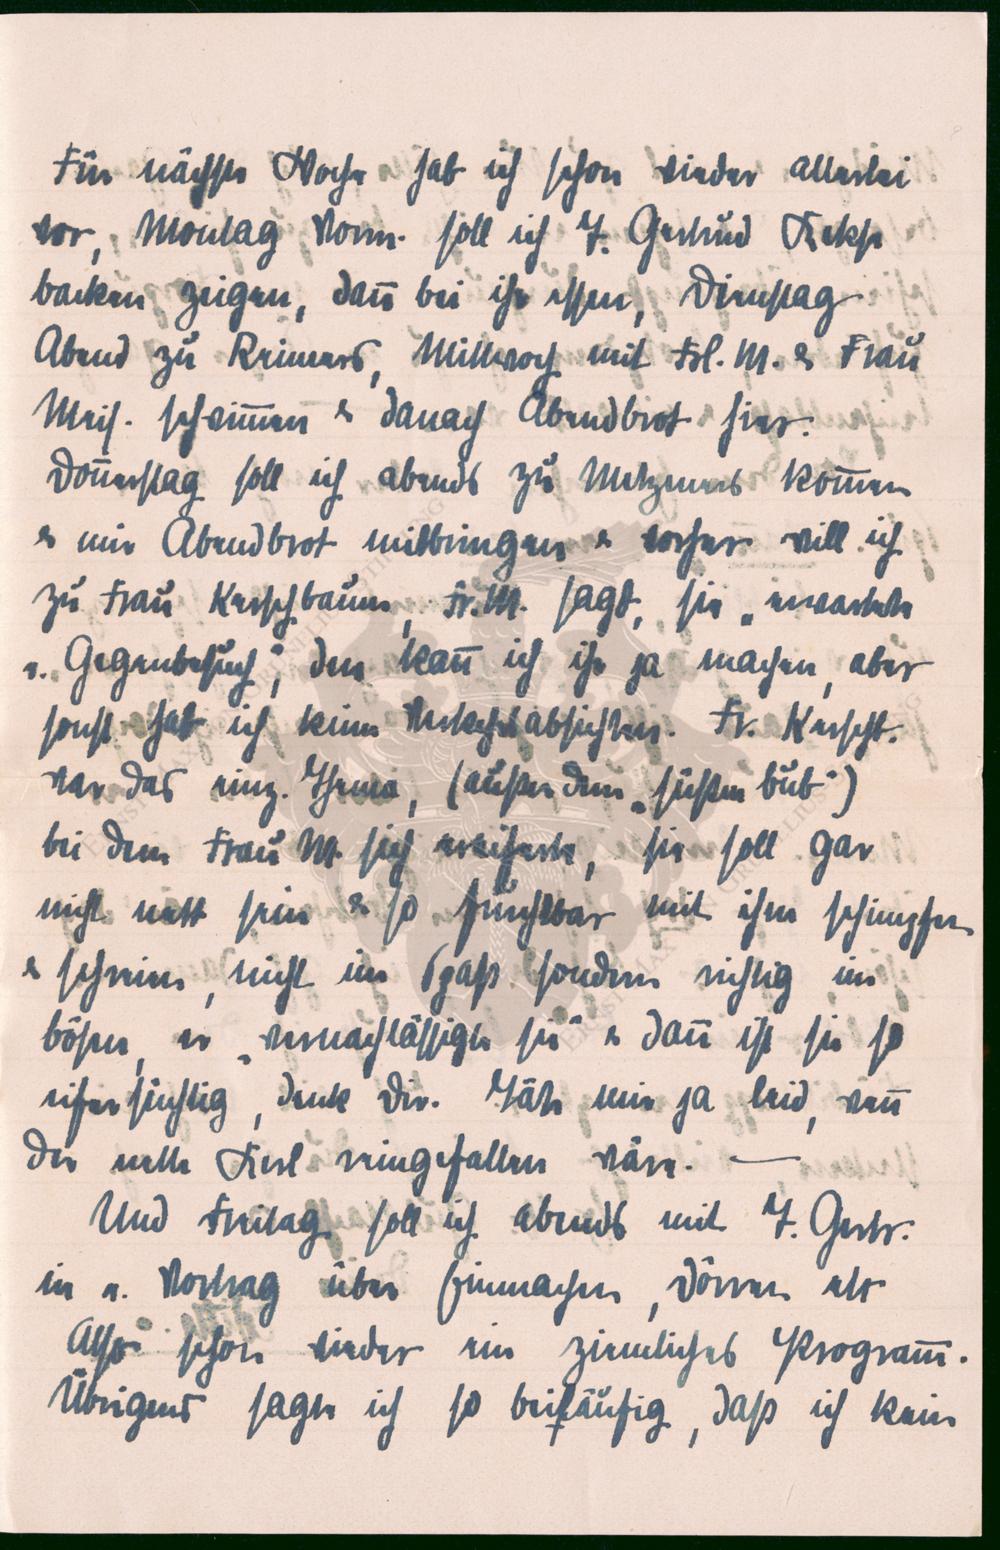 Für nächste Woche hab ich schon wieder allerlei
vor, Montag Vorm. soll ich T. Gertrud Kekse
backen zeigen, dan̅ bei ihr essen, Dienstag
Abend zu Reimers, Mittwoch mit Frl. M. & Frau
Meis. schwim̅en & danach Abendbrot hier.
Don̅erstag soll ich abends zu Metzeners kom̅en
& mir Abendbrot mitbringen & vorher will ich
zu Frau Kerschbaum, Fr. M. sagt, sie „erwartete
e. Gegenbesuch“, den kan̅ ich ihr ja machen, aber
sonst hab ich keine Verkehrsabsichten. Fr. Kerschb.
war das einz. Thema, (außer dem „süßen Bub“)
bei dem Frau M. sich ereiferte, sie soll gar
nicht nett sein & so furchtbar mit ihm schimpfen
& schreien, nicht im Spaß sondern richtig im
bösen, er „vernachlässigte sie“ & dan̅ ist sie so
eifersüchtig, denk Dir. Täte mir ja leid, wen̅
der nette Kerl reingefallen wäre. —
Und Freitag soll ich abends mit T. Gertr.
in e. Vortrag über Einmachen, Dörren etc
Also schon wieder ein ziemliches Program̅.
Übrigens sagte ich so beiläufig, daß ich kein